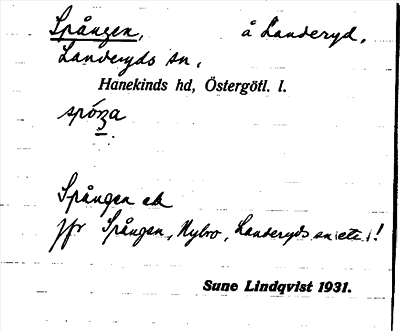 Spången, å Landeryd,
Landeryds sn,
Hanekinds hd, Östergötl. l.
Spången
jfr Spången, Nybro, Landeryds sn etc!
Sune Lindqvist 1931.